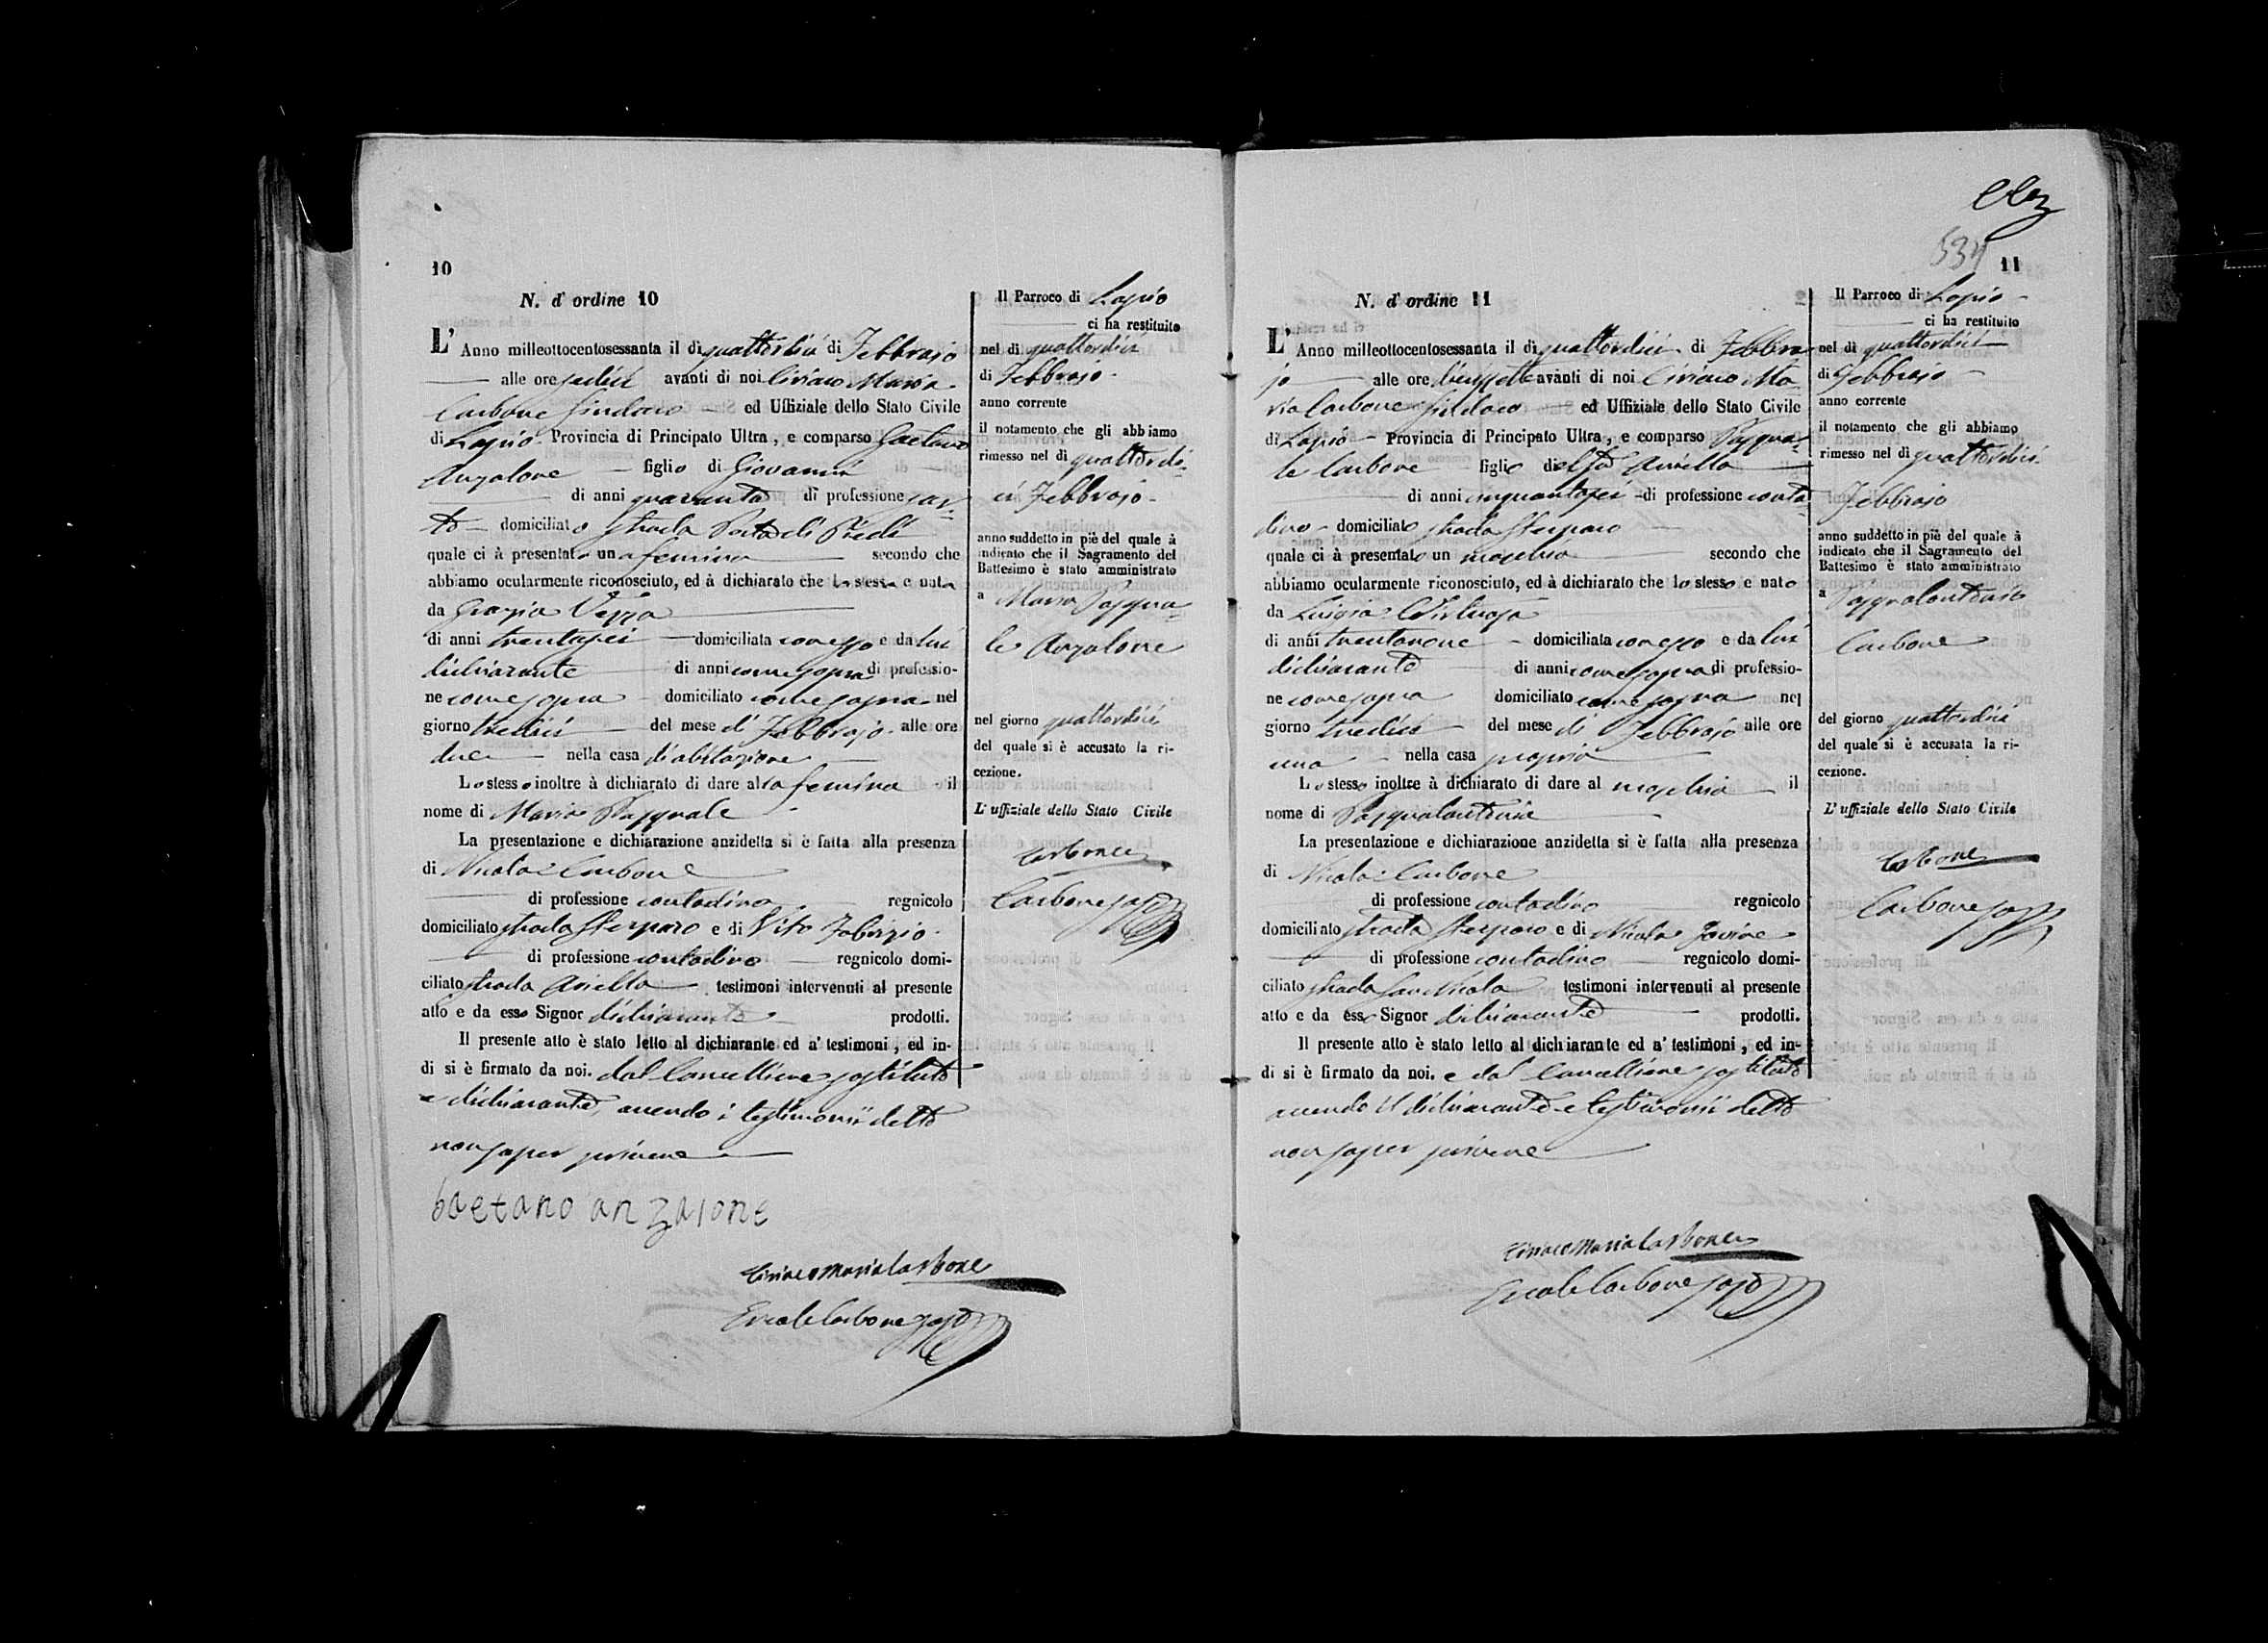 10
N. d' ordine 10
L' Anno milleottocentosessanta il dì quattordici di Febbrajo
alle ore sedici avanti di noi Ciriaco Maria
Carbone Sindaco ed Uffiziale dello Stato Civile
di Lapio Provincia di Principato Ultra, e comparso Gaetano
Anzalone figlio di Giovanni
di anni quaranta di professione sar-
to domiciliato strada Porta di Piedi
quale ci à presentato una femina secondo che
abbiamo ocularmente riconosciuto, ed à dichiarato che la stessa e nata
da Grazia Vezza
di anni trentasei domiciliata con esso e da lui
dichiarante di anni come sopra di professio-
ne come sopra domiciliato come sopra nel
giorno tredici del mese di Febbrajo alle ore
due nella casa di abitazione
Lo stesso inoltre à dichiarato di dare alla femina il
nome di Maria Pasquale
La presentazione e dichiarazione anzidetta si è fatta alla presenza
di Nicola Carbone
di professione contadino regnicolo
domiciliato strada Sterparo e di Vito Fabrizio
di professione contadino regnicolo domi-
ciliato strada Ariella testimoni intervenuti al presente
atto e da esso Signor dichiarante prodotti.
Il presente atto è stato letto al dichiarante ed a' testimoni, ed in-
di si è firmato da noi. dal Cancelliere sostituto
e dichiarante, avendo i testimonii detto
non saper scrivere
Gaetano anzalone
Ciriaco Maria Carbone
Ercole Carbone sost
Il Parroco di Lapio
ci ha restituito
nel dì quattordici
di Febbrajo
anno corrente
il notamento che gli abbiamo
rimesso nel dì quattordi-
ci Febbrajo
anno suddetto in piè del quale à
indicato che il Sagramento del
Battesimo è stato amministrato
a Maria Pasqua-
le Anzalone
nel giorno quattordici
del quale si è accusato la ri-
cezione.
L' uffiziale dello Stato Civile
Carbone
Carbone sost
534
11
N. d' ordine 11
L' Anno milleottocentosessanta il dì quattordici di Febbra
jo alle ore diecisette avanti di noi Ciriaco Ma-
ria Carbone Sindaco ed Uffiziale dello Stato Civile
di Lapio Provincia di Principato Ultra, e comparso Pasqua-
le Carbone figlio del fu Aniello
di anni cinquantasei di professione conta
dino domiciliato strada Sterparo
quale ci à presentato un maschio secondo che
abbiamo ocularmente riconosciuto, ed à dichiarato che lo stesso e nato
da Luigia
di anni trentanove domiciliata con esso e da lui
dichiarante di anni come sopra di professio-
ne come sopra domiciliato come sopra nel
giorno tredici del mese di Febbrajo alle ore
una nella casa propria
Lo stesso inoltre à dichiarato di dare al maschio il
nome di Pasqualantonio
La presentazione e dichiarazione anzidetta si è fatta alla presenza
di Nicola Carbone
di professione contadino regnicolo
domiciliato strada Sterparo e di Nicola Jovine
di professione contadino regnicolo domi-
ciliato strada San Nicola testimoni intervenuti al presente
atto e da esso Signor dichiarante prodotti.
Il presente atto è stato letto al dichiarante ed a' testimoni, ed in-
di si è firmato da noi. e dal Cancelliere sostituto
avendo il dichiarante e testimonii detto
non saper scrivere
Ciriaco Maria Carbone
Ercole Carbone sost
Il Parroco di Lapio
ci ha restituito
nel dì quattordici
di Febbrajo
anno corrente
il notamento che gli abbiamo
rimesso nel dì quattordici
Febbrajo
anno suddetto in piè del quale à
indicato che il Sagramento del
Battesimo è stato amministrato
a Pasqualantonio
Carbone
del giorno quattordici
del quale si è accusata la ri-
cezione.
L' uffiziale dello Stato Civile
Carbone
Carbone sost